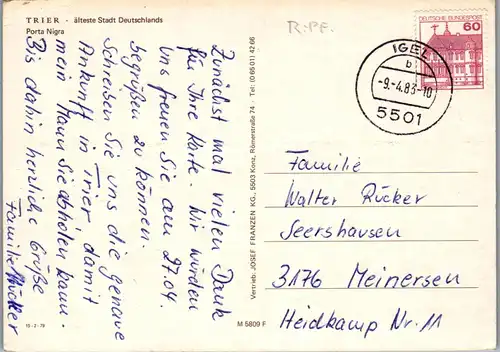 TRIER - älteste Stadt Deutschlands
Porta Nigra
R.-PF.
Zunächst mal vielen Dank
für Ihre Karte. Wir würden
uns freuen Sie am 27.04.
begrüßen zu können.
Schreiben Sie uns die genaue
Ankunft in Trier damit
mein Mann Sie abholen kann
Bis dahin herzliche Grüße
Familie
15-2-79
Vertrieb: JOSEF FRANZEN KG., 5503 Konz, Römerstraße 74 - Tel.: (0 65 01) 42 66
M 5809 F
DEUTSCHE BUNDESPOST
60
IGEL
b
-9.-4.83-10
5501
Familie
Walter Rücker
Seershausen
3176 Meinersen
Heidkamp Nr. 11